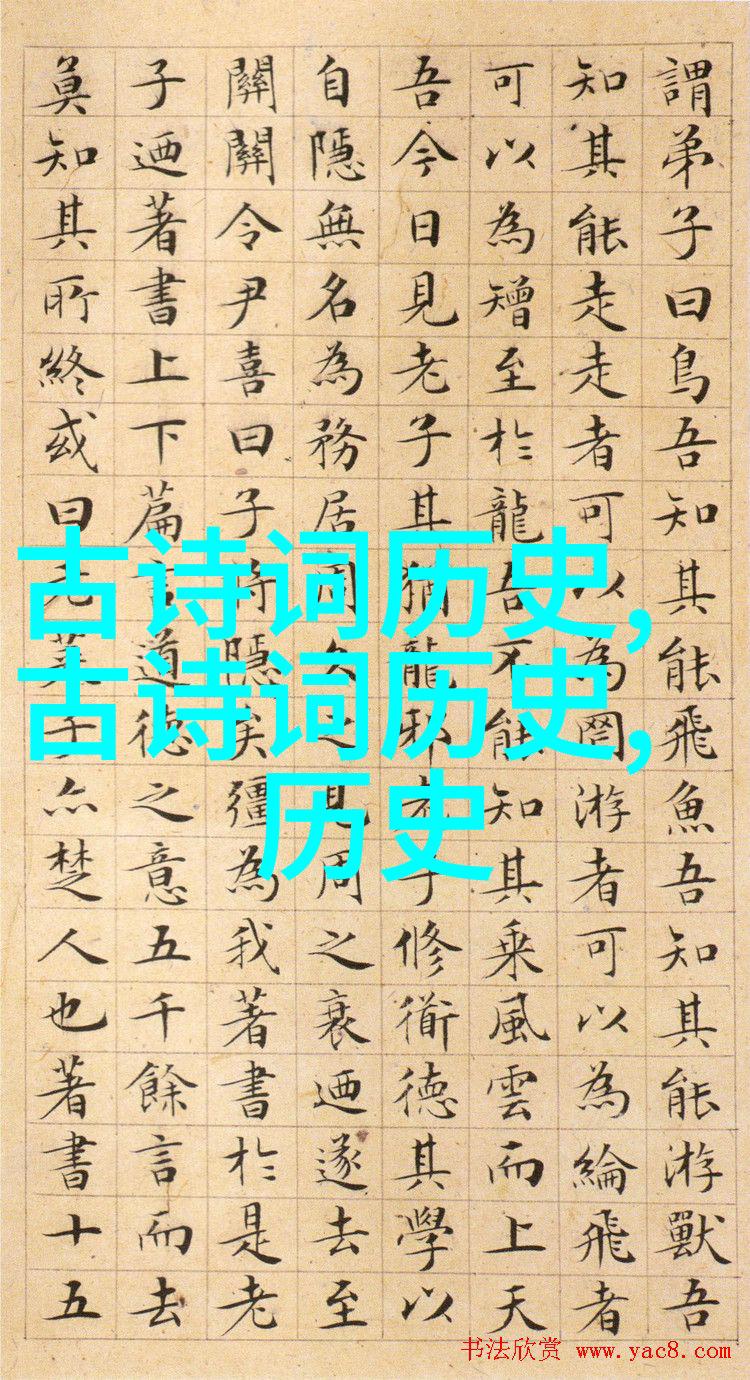 謂弟子曰鳥吾知其能飛魚吾知其能游獸吾
知其能走走者可以為罔游者可以為綸飛者
可以為矰至於龍吾不能知其乘風雲而上天
吾今日見老子其猶龍邪老子修衟德其學以
自隱無名為務居周久之見周之衰迺遂去至
關關令尹喜曰子將隱矣彊為我著書於是老
子迺著書上下篇言道德之意五千餘言而去
莫知其所終或曰老萊子亦楚人也著書十五
古诗词历史,
古诗词历史,
历史
书法欣赏 www.yac8.com